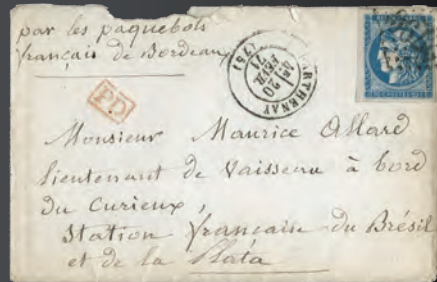 par les paquebots
français de Bordeaux
PARTHENAY
20
FEVR.
71
(75)
P.D.
Monsieur Maurice Allard
lieutenant de Vaisseau à bord
du Curieux,
Station française du Brésil
et de la Plata